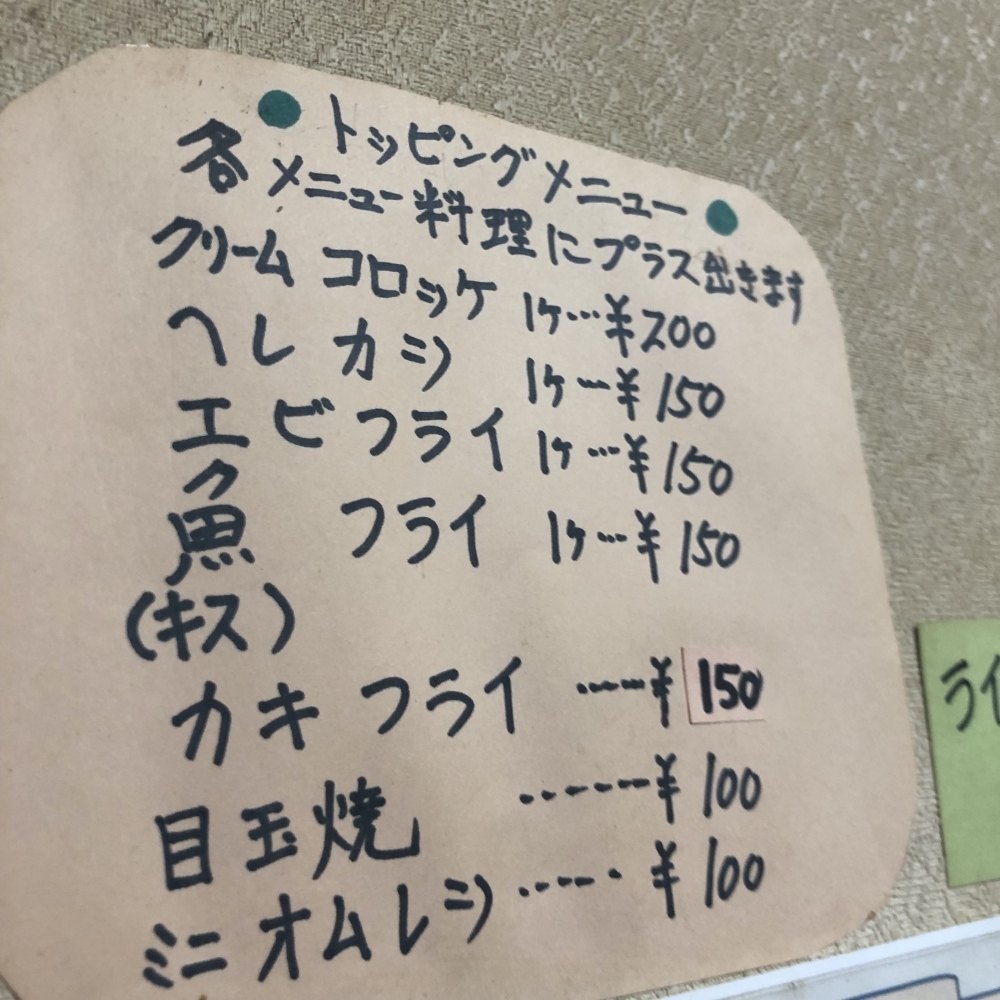 トッピングメニュー
各メニュー料理にプラス出きます
クリームコロッケ 1ヶ…¥200
ヘレカツ 1ヶ…¥150
エビフライ 1ヶ…¥150
魚フライ 1ヶ…¥150
(キス)
カキフライ ……¥150
目玉焼 ……¥100
ミニオムレツ ……¥100
ライ